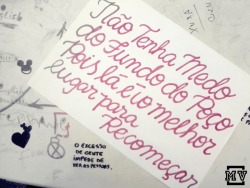 Não Tenha Medo
do Fundo do Poço
Pois lá é o melhor
lugar para
Recomeçar
O EXCESSO
DE GENTE
IMPEDE DE
VER AS PESSOAS.
MV